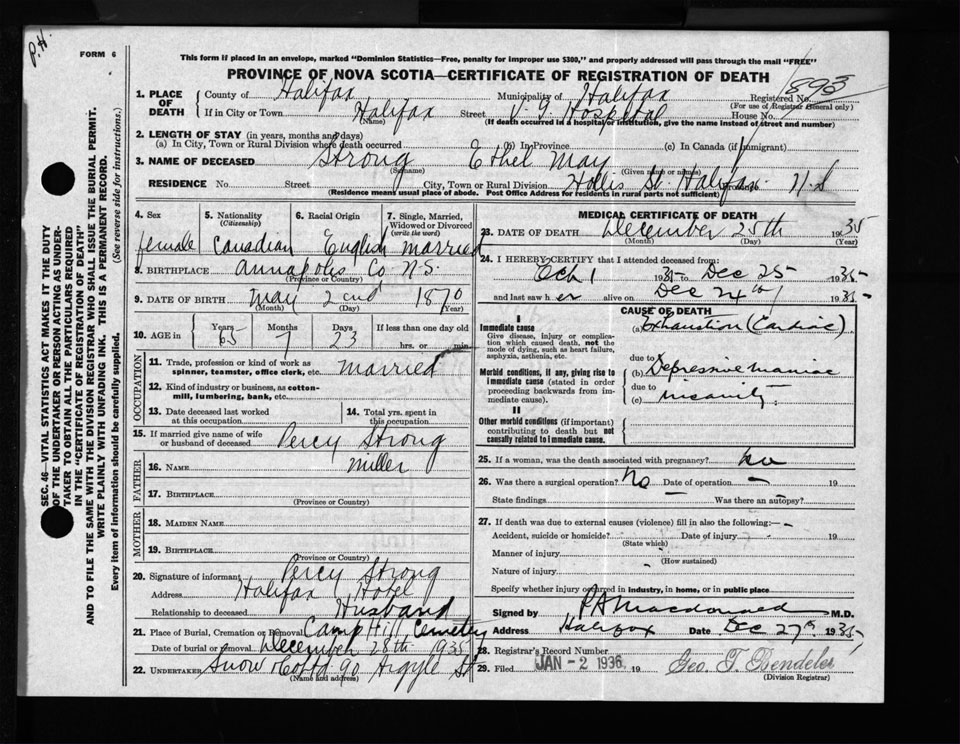 P.H.
FORM 6
This form if placed in an envelope, marked "Dominion Statistics—Free, penalty for improper use $300," and properly addressed will pass through the mail "FREE"
PROVINCE OF NOVA SCOTIA—CERTIFICATE OF REGISTRATION OF DEATH
SEC. 46—VITAL STATISTICS ACT MAKES IT THE DUTY
OF THE UNDERTAKER OR PERSON ACTING AS UNDER-
TAKER TO OBTAIN ALL THE PARTICULARS REQUIRED
IN THE "CERTIFICATE OF REGISTRATION OF DEATH"
AND TO FILE THE SAME WITH THE DIVISION REGISTRAR WHO SHALL ISSUE THE BURIAL PERMIT.
WRITE PLAINLY WITH UNFADING INK. THIS IS A PERMANENT RECORD.
Every item of information should be carefully supplied. (See reverse side for instructions.)
1. PLACE OF DEATH County of Halifax Municipality of Halifax Registered No. 1893
(For use of Registrar General only)
If in City or Town Halifax Street V. G. Hospital House No.
(Name) (If death occurred in a hospital or institution, give the name instead of street and number)
2. LENGTH OF STAY (in years, months and days)
(a) In City, Town or Rural Division where death occurred (b) In Province (c) In Canada (if immigrant)
3. NAME OF DECEASED Strong Ethel May
(Surname) (Given name or names)
RESIDENCE No. Street City, Town or Rural Division Hollis St. Halifax N.S
(Residence means usual place of abode. Post Office Address for residents in rural parts not sufficient)
4. Sex 5. Nationality (Citizenship) 6. Racial Origin 7. Single, Married, Widowed or Divorced (write the word)
female Canadian English married
8. BIRTHPLACE Annapolis Co N.S.
(Province or Country)
9. DATE OF BIRTH May 2nd 1870
(Month) (Day) (Year)
10. AGE in Years Months Days If less than one day old
65 7 23 hrs. or min.
OCCUPATION
11. Trade, profession or kind of work as spinner, teamster, office clerk, etc. Married
12. Kind of industry or business, as cotton-mill, lumbering, bank, etc.
13. Date deceased last worked at this occupation 14. Total yrs. spent in this occupation
15. If married give name of wife or husband of deceased Percy Strong
FATHER
16. NAME Miller
17. BIRTHPLACE
(Province or Country)
MOTHER
18. MAIDEN NAME
19. BIRTHPLACE
(Province or Country)
20. Signature of informant Percy Strong
Address Halifax Hotel
Relationship to deceased Husband
21. Place of Burial, Cremation or Removal Camp Hill Cemetery
Date of burial or removal December 28th 1935
22. UNDERTAKER Snow & Co Ltd 90 Argyle St
(Name and Address)
MEDICAL CERTIFICATE OF DEATH
23. DATE OF DEATH December 25th 1935
(Month) (Day) (Year)
24. I HEREBY CERTIFY that I attended deceased from:
Oct 1 1935 to Dec 25 1935
and last saw her alive on Dec 24th 1935
CAUSE OF DEATH
I
Immediate cause
Give disease, injury or complication which caused death, not the mode of dying, such as heart failure, asphyxia, asthenia, etc.
(a) Exhaustion (Cardiac)
due to
Morbid conditions, if any, giving rise to immediate cause (stated in order proceeding backwards from immediate cause).
(b) Depressive maniac
due to
(c) insanity.
II
Other morbid conditions (if important) contributing to death but not causally related to immediate cause.
25. If a woman, was the death associated with pregnancy? no
26. Was there a surgical operation? No Date of operation — 19
State findings — Was there an autopsy?
27. If death was due to external causes (violence) fill in also the following:—
Accident, suicide or homicide? Date of injury 19
(State which)
Manner of injury
(How sustained)
Nature of injury
Specify whether injury occurred in industry, in home, or in public place
Signed by P A Macdonald M.D.
Address Halifax Date Dec 27th 1935
28. Registrar's Record Number
29. Filed JAN - 2 1936 19 Geo. T. Bendeler
(Division Registrar)